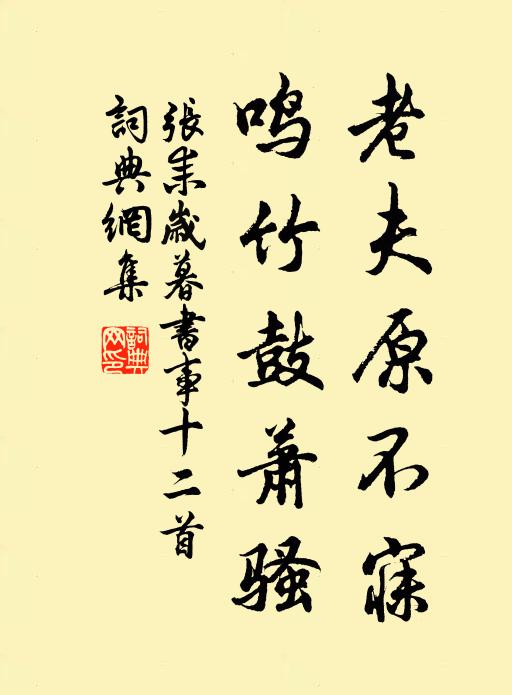 老夫原不寐
鸣竹鼓萧骚
張耒歲暮書事十二首
詞典網集
詞典网印